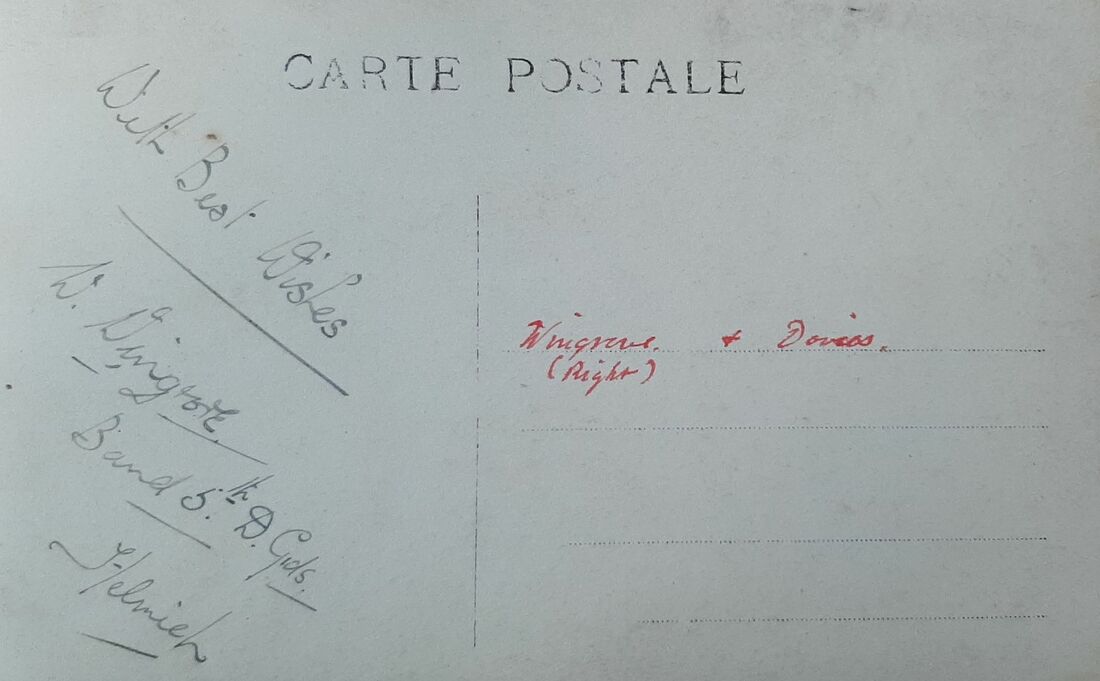 CARTE POSTALE
With Best Wishes
W. Wingrove.
Band 5.th D. Gds.
Helmieh
Wingrove. + Davies.
(Right)